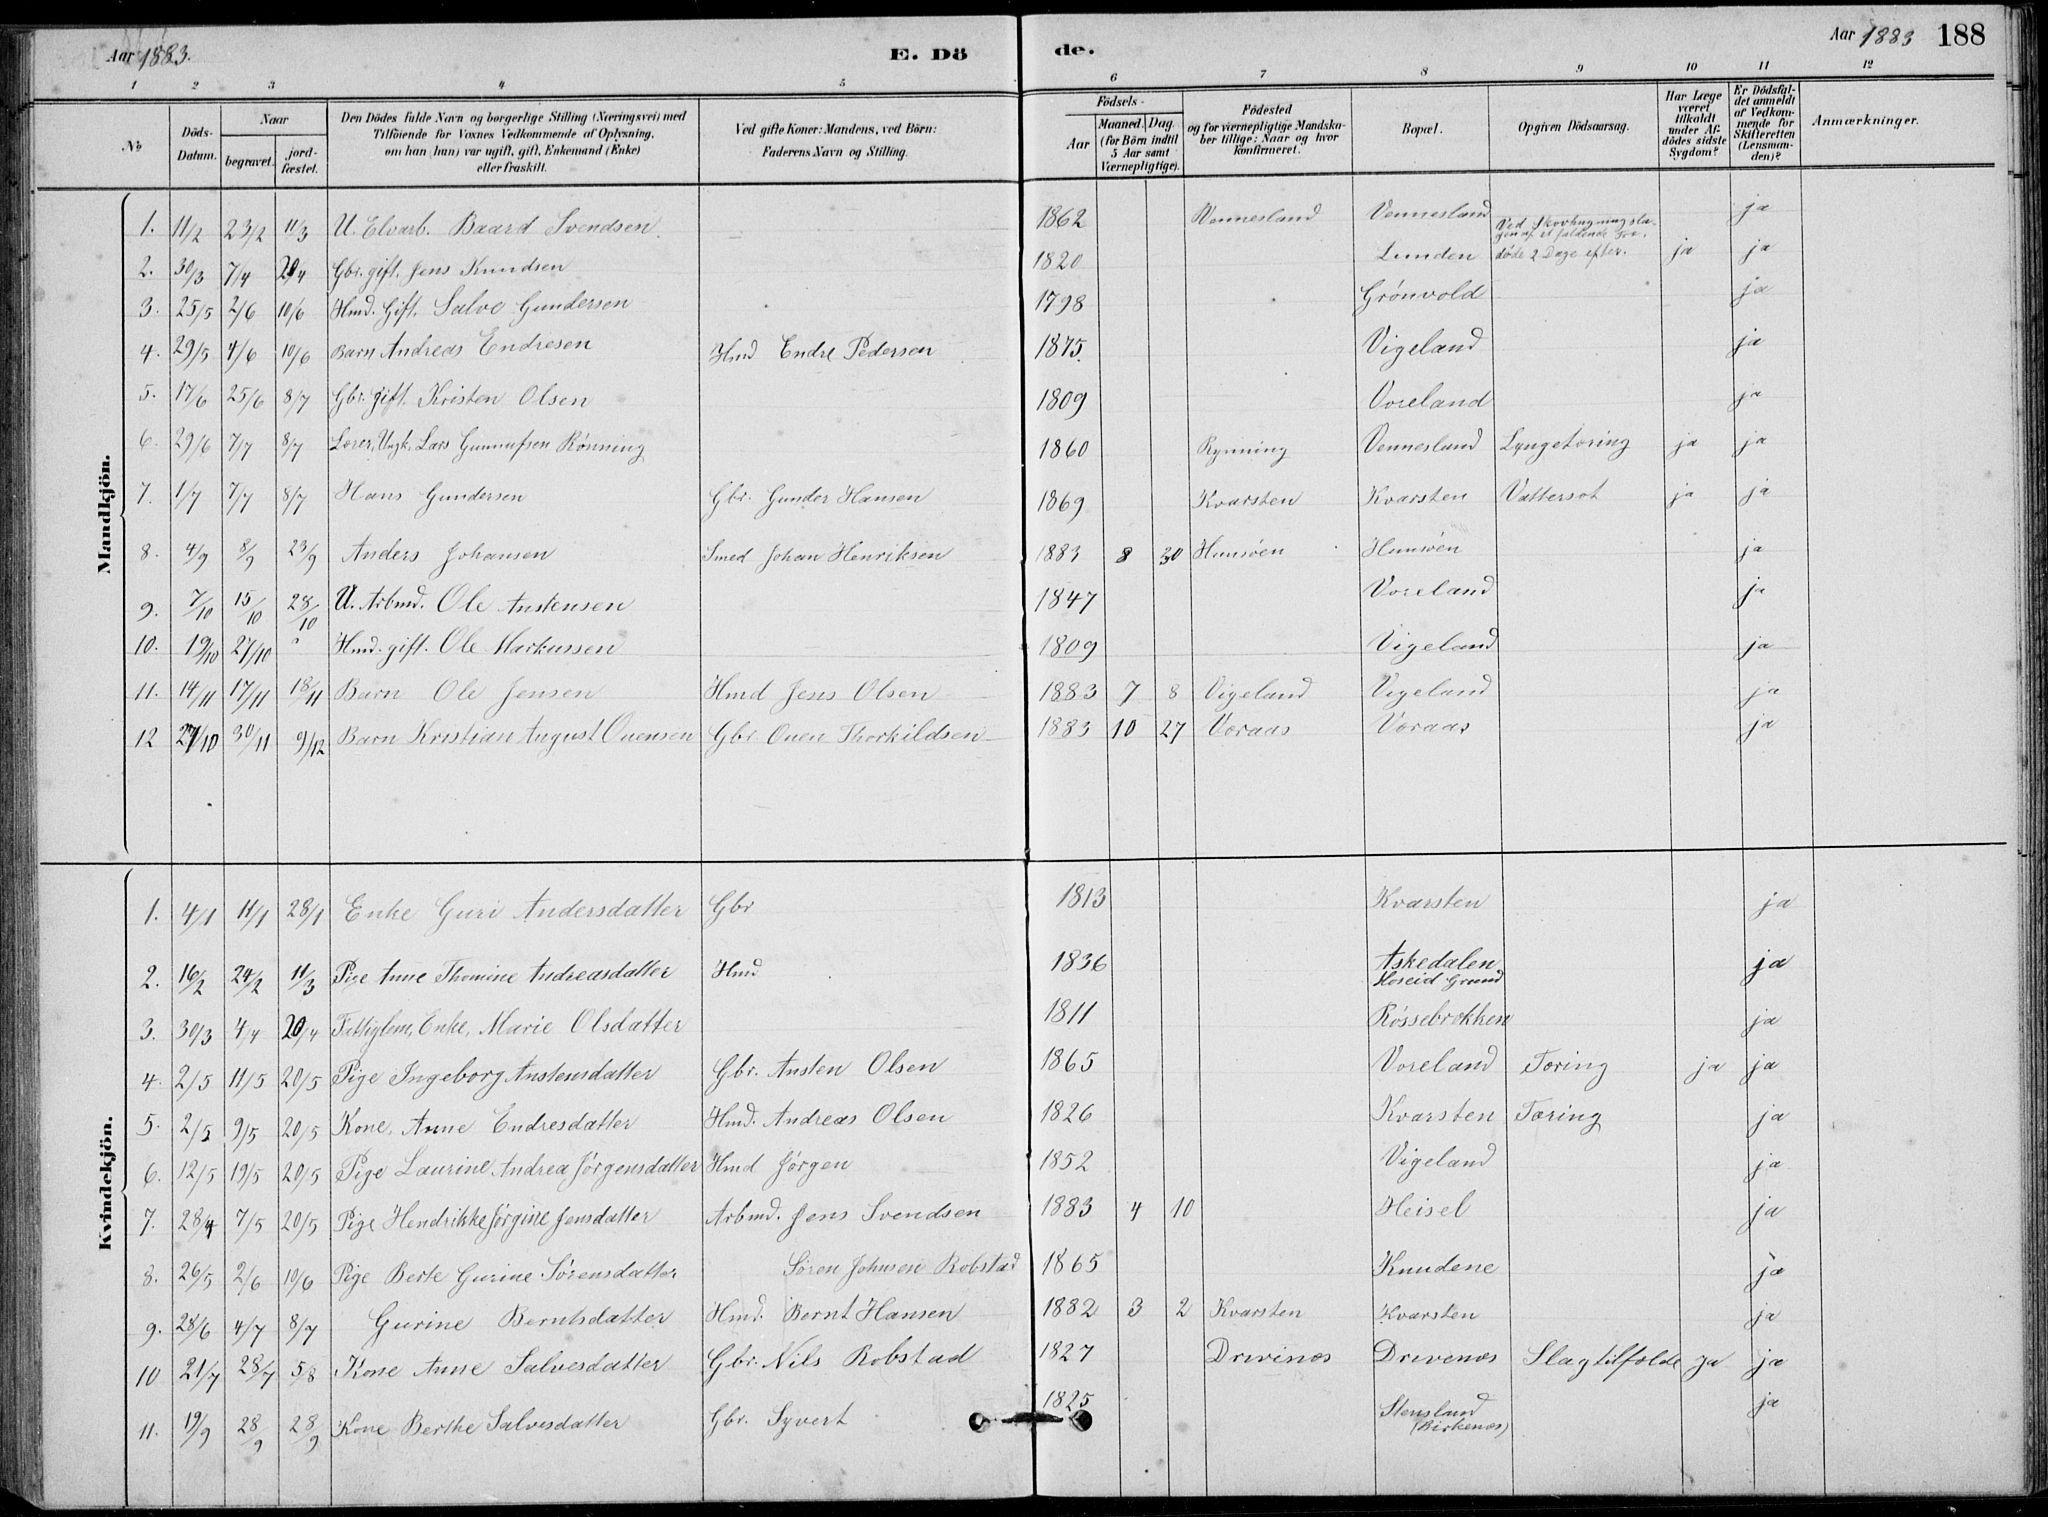 Aar 1883.
E. Dö
de.
Aar 1883 188
1 2 3 4 5 6 7 8 9 10 11 12
№
Döds-Datum.
Naar
begravet.
jord-fæstet.
Den Dödes fulde Navn og borgerlige Stilling (Næringsvei) med
Tilföiende for Voxnes Vedkommende af Oplysning,
om han (hun) var ugift, gift, Enkemand (Enke)
eller fraskilt.
Ved gifte Koner: Mandens, ved Börn:
Faderens Navn og Stilling.
Födsels-
Aar
Maaned. Dag.
(for Börn indtil
5 Aar samt
Værnepligtige).
Födested
og for værnepligtige Mandska-
ber tillige: Naar og hvor
konfirmeret.
Bopæl.
Opgiven Dödsaarsag.
Har Læge
været
tilkaldt
under Af-
dödes sidste
Sygdom?
Er Dödsfal-
det anmeldt
af Vedkom-
mende for
Skifteretten
(Lensman-
den)?
Anmærkninger.
Mandkjön.
1. 11/2 23/2 11/3 U. Elvarb. Baard Svendsen 1862 Vennesland Vennesland Ved Skovhugning sla-
gen af et faldende Træ, ja
2. 30/3 7/4 20/4 Gbr. gift. Jens Knudsen 1820 Lunden døde 2 Dage efter. ja ja
3. 25/5 2/6 10/6 Hmd. Gift. Salve Gundersen 1798 Grønvold ja
4. 29/5 4/6 10/6 Barn Andreas Endresen Hmd Endre Pedersen 1875. Vigeland ja
5. 17/6 25/6 8/7 Gbr. gift. Kristen Olsen 1809 Voreland ja
6. 29/6 7/7 8/7 Lærer, Ungk. Lars Gunnufsen Rønning 1860 Rynning Vennesland Lungetæring ja ja
7. 1/7 7/7 8/7 Hans Gundersen Gbr. Gunder Hansen 1869 Kvarsten Kvarsten Vattersot ja ja
8. 4/9 8/9 23/9 Anders Johansen Smed Johan Henriksen 1883 8 30 Hunsøen Hunsøen ja
9. 7/10 15/10 28/10 U. Arbmd. Ole Anstensen 1847 Voreland ja
10. 19/10 27/10 " Hmd. gift. Ole Markussen 1809 Vigeland ja
11. 14/11 17/11 18/11 Barn Ole Jensen Hmd Jens Olsen 1883 7 8 Vigeland Vigeland ja
12 27/10 30/11 9/12 Barn Kristian August Ouensen Gbr. Ouen Thorkildsen 1883 10 27 Voraas Voraas ja
Kvindekjön.
1. 4/1 11/1 28/1 Enke Guri Andersdatter Gbr 1813 Kvarsten ja
2. 16/2 24/2 11/3 Pige Anne Thomine Andreasdatter Hmd 1836 Askedalen
Hoseid Grund ja
3. 30/3 4/4 20/4 Fattiglem, Enke, Marie Olsdatter 1811 Røssebrokken ja
4. 2/5 11/5 20/5 Pige Ingeborg Anstensdatter Gbr. Ansten Olsen 1865 Voreland Tæring ja ja
5. 2/5 9/5 20/5 Kone, Anne Endresdatter Hmd. Andreas Olsen 1826 Kvarsten Tæring ja
6. 12/5 19/5 20/5 Pige Laurine Andrea Jørgensdatter Hmd Jørgen 1852 Vigeland ja
7. 28/4 7/5 20/5 Pige Hendrikke Jørgine Jensdatter Arbmd. Jens Svendsen 1883 4 10 Heisel ja
8. 26/5 2/6 10/6 Pige Berte Gurine Sørensdatter Søren Johnsen Robstad 1865 Knudene ja
9. 28/6 4/7 8/7 Gurine Berntsdatter Hmd. Bernt Hansen 1882 3 2 Kvarsten Kvarsten ja
10 21/7 28/7 5/8 Kone Anne Salvesdatter Gbr. Nils Robstad 1827 Drivinæs Drevenæs Slagtilfælde ja ja
11. 19/9 28/9 28/9 Kone Berthe Salvesdatter Gbr. Syvert 1825 Stensland
(Birkenæs) ja